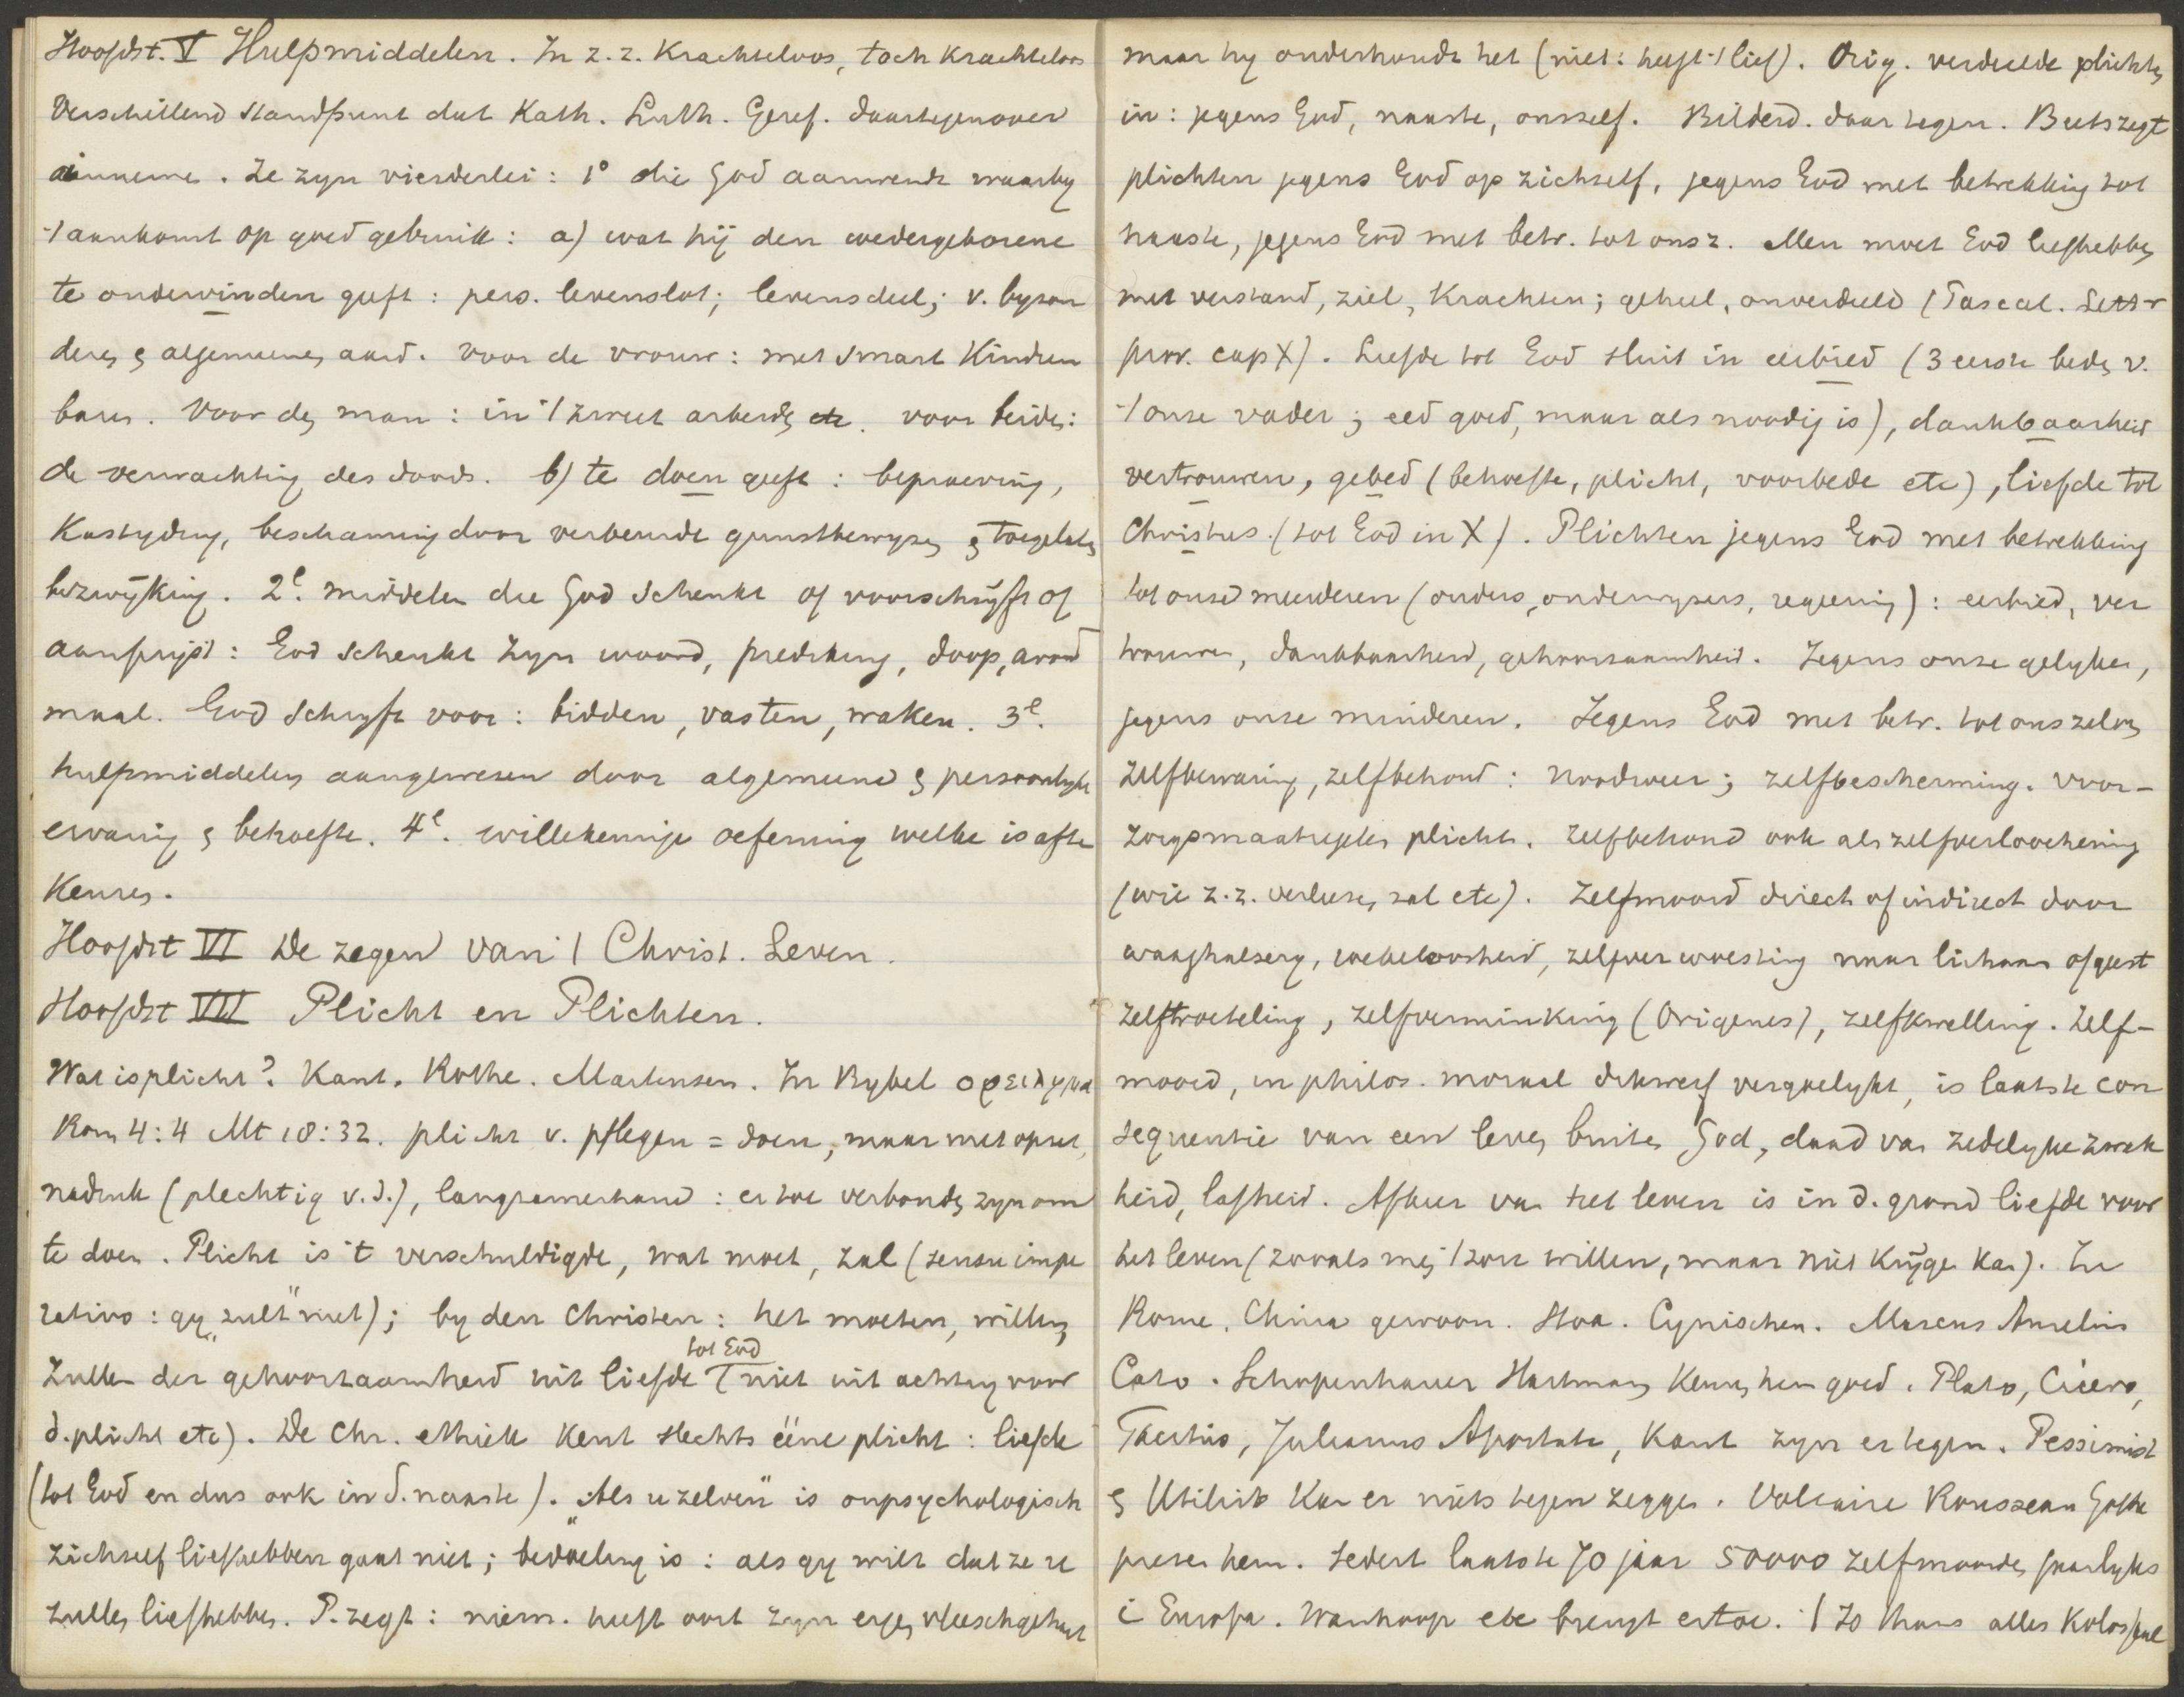 Hoofdst. V Hulpmiddelen. In z. z. Krachteloos, toch Krachteloos
Verschillend standpunt dat Kath. Luth. Geref. daartegenover
innemen. Ze zyn vierderlei: 1° die God aanwendt waarby
't aankomt op goed gebruik: a) wat hij den wedergeborene
te ondervinden geeft: pers. levenslot; levensdeel; v. byzon
dere, & algemeene, aard. Voor de vrouw: met smart Kinderen
baren. Voor den man: in 't zweet arbeiden etc. voor beide:
de verwachting des doods. b) te doen geeft: beproeving,
Kastyding, beschaming door verbeurde gunstbewyzen & toegelaten
bezwijking. 2e. middelen die God schenkt of voorschrijft of
aanprijst: God schenkt zyn woord, prediking, doop, avond
maal. God schryft voor: bidden, vasten, waken. 3e.
hulpmiddelen aangewesen door algemeene & persoonlyke
ervaring & behoefte. 4e. willekeurige oefening welke is af te
Keuren.
Hoofdst VI De zegen van 't Christ. Leven.
Hoofdst VII Plicht en Plichten.
Wat is plicht? Kant. Rothe. Martensen. In Bybel οφειλημα
Rom 4:4 Mt 18:32. plicht v. pflegen = doen, maar met opzet,
nadruk (plechtig v.d.), langzamerhand: er toe verbonden zyn om
te doen. Plicht is 't verschuldigde, wat moet, zal (sensu impe
rativo: gy „zult" niet); by den Christen: het moeten, willen,
zullen der gehoorzaamheid uit liefde tot God niet uit achting voor
d. plicht etc). De Chr. ethiek kent slechts ééne plicht: liefde
(tot God en dus ook in d. naaste). „Als uzelven" is onpsychologisch
zichzelf liefhebben gaat niet; bedoeling is: als gy wilt dat ze u
zullen liefhebben. P. zegt: niem. heeft ooit zyn eigen vleesch gehaat
maar hy onderhoudt het (niet: heeft 't lief). Orig. verdeelde plichten
in: jegens God, naaste, onszelf. Bilderd. daartegen. Beets zegt
plichten jegens God op zichzelf, jegens God met betrekking tot
naaste, jegens God met betr. tot ons z. Men moet God liefhebben
met verstand, ziel, Krachten; geheel, onverdeeld (Pascal. Lettr
prov. cap X). Liefde tot God sluit in eerbied (3 eerste beden v.
't onze vader; eed goed, maar als noodig is), dankbaarheid
vertrouwen, gebed (behoefte, plicht, voorbede etc), liefde tot
Christus. (tot God in X). Plichten jegens God met betrekking
tot onze meerderen (ouders, onderwyzers, regeering): eerbied, ver
trouwen, dankbaarheid, gehoorzaamheid. Jegens onze gelyken,
jegens onze minderen. Jegens God met betr. tot ons zelven
zelfbewaring, zelfbehoud: Noodweer; zelfbescherming. Voor-
zorgsmaatregelen plicht. Zelfbehoud ook als zelfverloochening
(wie z. z. verliezen zal etc). Zelfmoord direct of indirect door
waaghalsery, roekeloosheid, zelfverwoesting naar lichaam of geest
zelftroeteling, zelfverminking (Origenes), zelfkwelling. Zelf-
moord, in philos. moraal dikwerf vergoelykt, is laatste con
sequentie van een leven buiten God, daad van zedelyke zwak
heid, lafheid. Afkeer van het leven is in d. grond liefde voor
het leven (zooals men 't zou willen, maar niet Krijgen Kan). In
Rome, China gewoon. Stoa. Cynischen. Marcus Aurelius
Cato. Schopenhauer Hartmann, Keuren hem goed. Plato, Cicero,
Tacitus, Julianus Apostata, Kant zyn er tegen. Pessimist
& Utilist Kan er niets tegen zeggen. Voltaire Rousseau Gothe
prezen hem. Sedert laatste 70 jaar 50000 zelfmoorden jaarlyks
i Europa. Wanhoop etc brengt ertoe. 't Zo thans alles Kolossaal